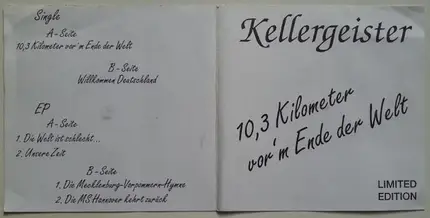 Single
A-Seite
10,3 Kilometer vor'm Ende der Welt
B-Seite
Willkommen Deutschland
EP
A-Seite
1. Die Welt ist schlecht...
2. Unsere Zeit
B-Seite
1. Die Mecklenburg-Vorpommern-Hymne
2. Die MS Hannover kehrt zurück
Kellergeister
10,3 Kilometer
vor'm Ende der Welt
LIMITED
EDITION